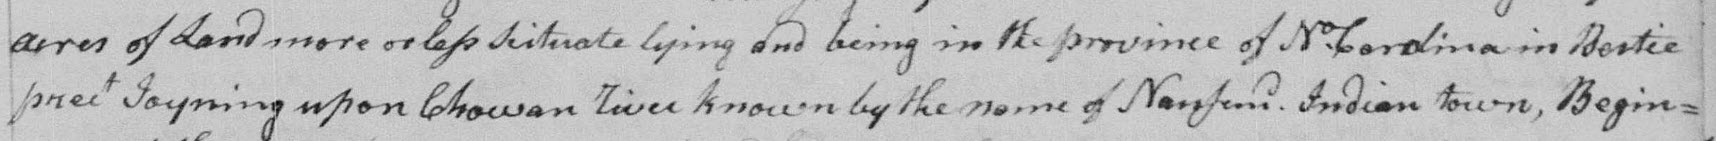 acres of Land more or less situate lying and being in the province of No. Carolina in Bertie
prect Joyning upon Chowan River known by the name of Nansemd. Indian town, Begin=